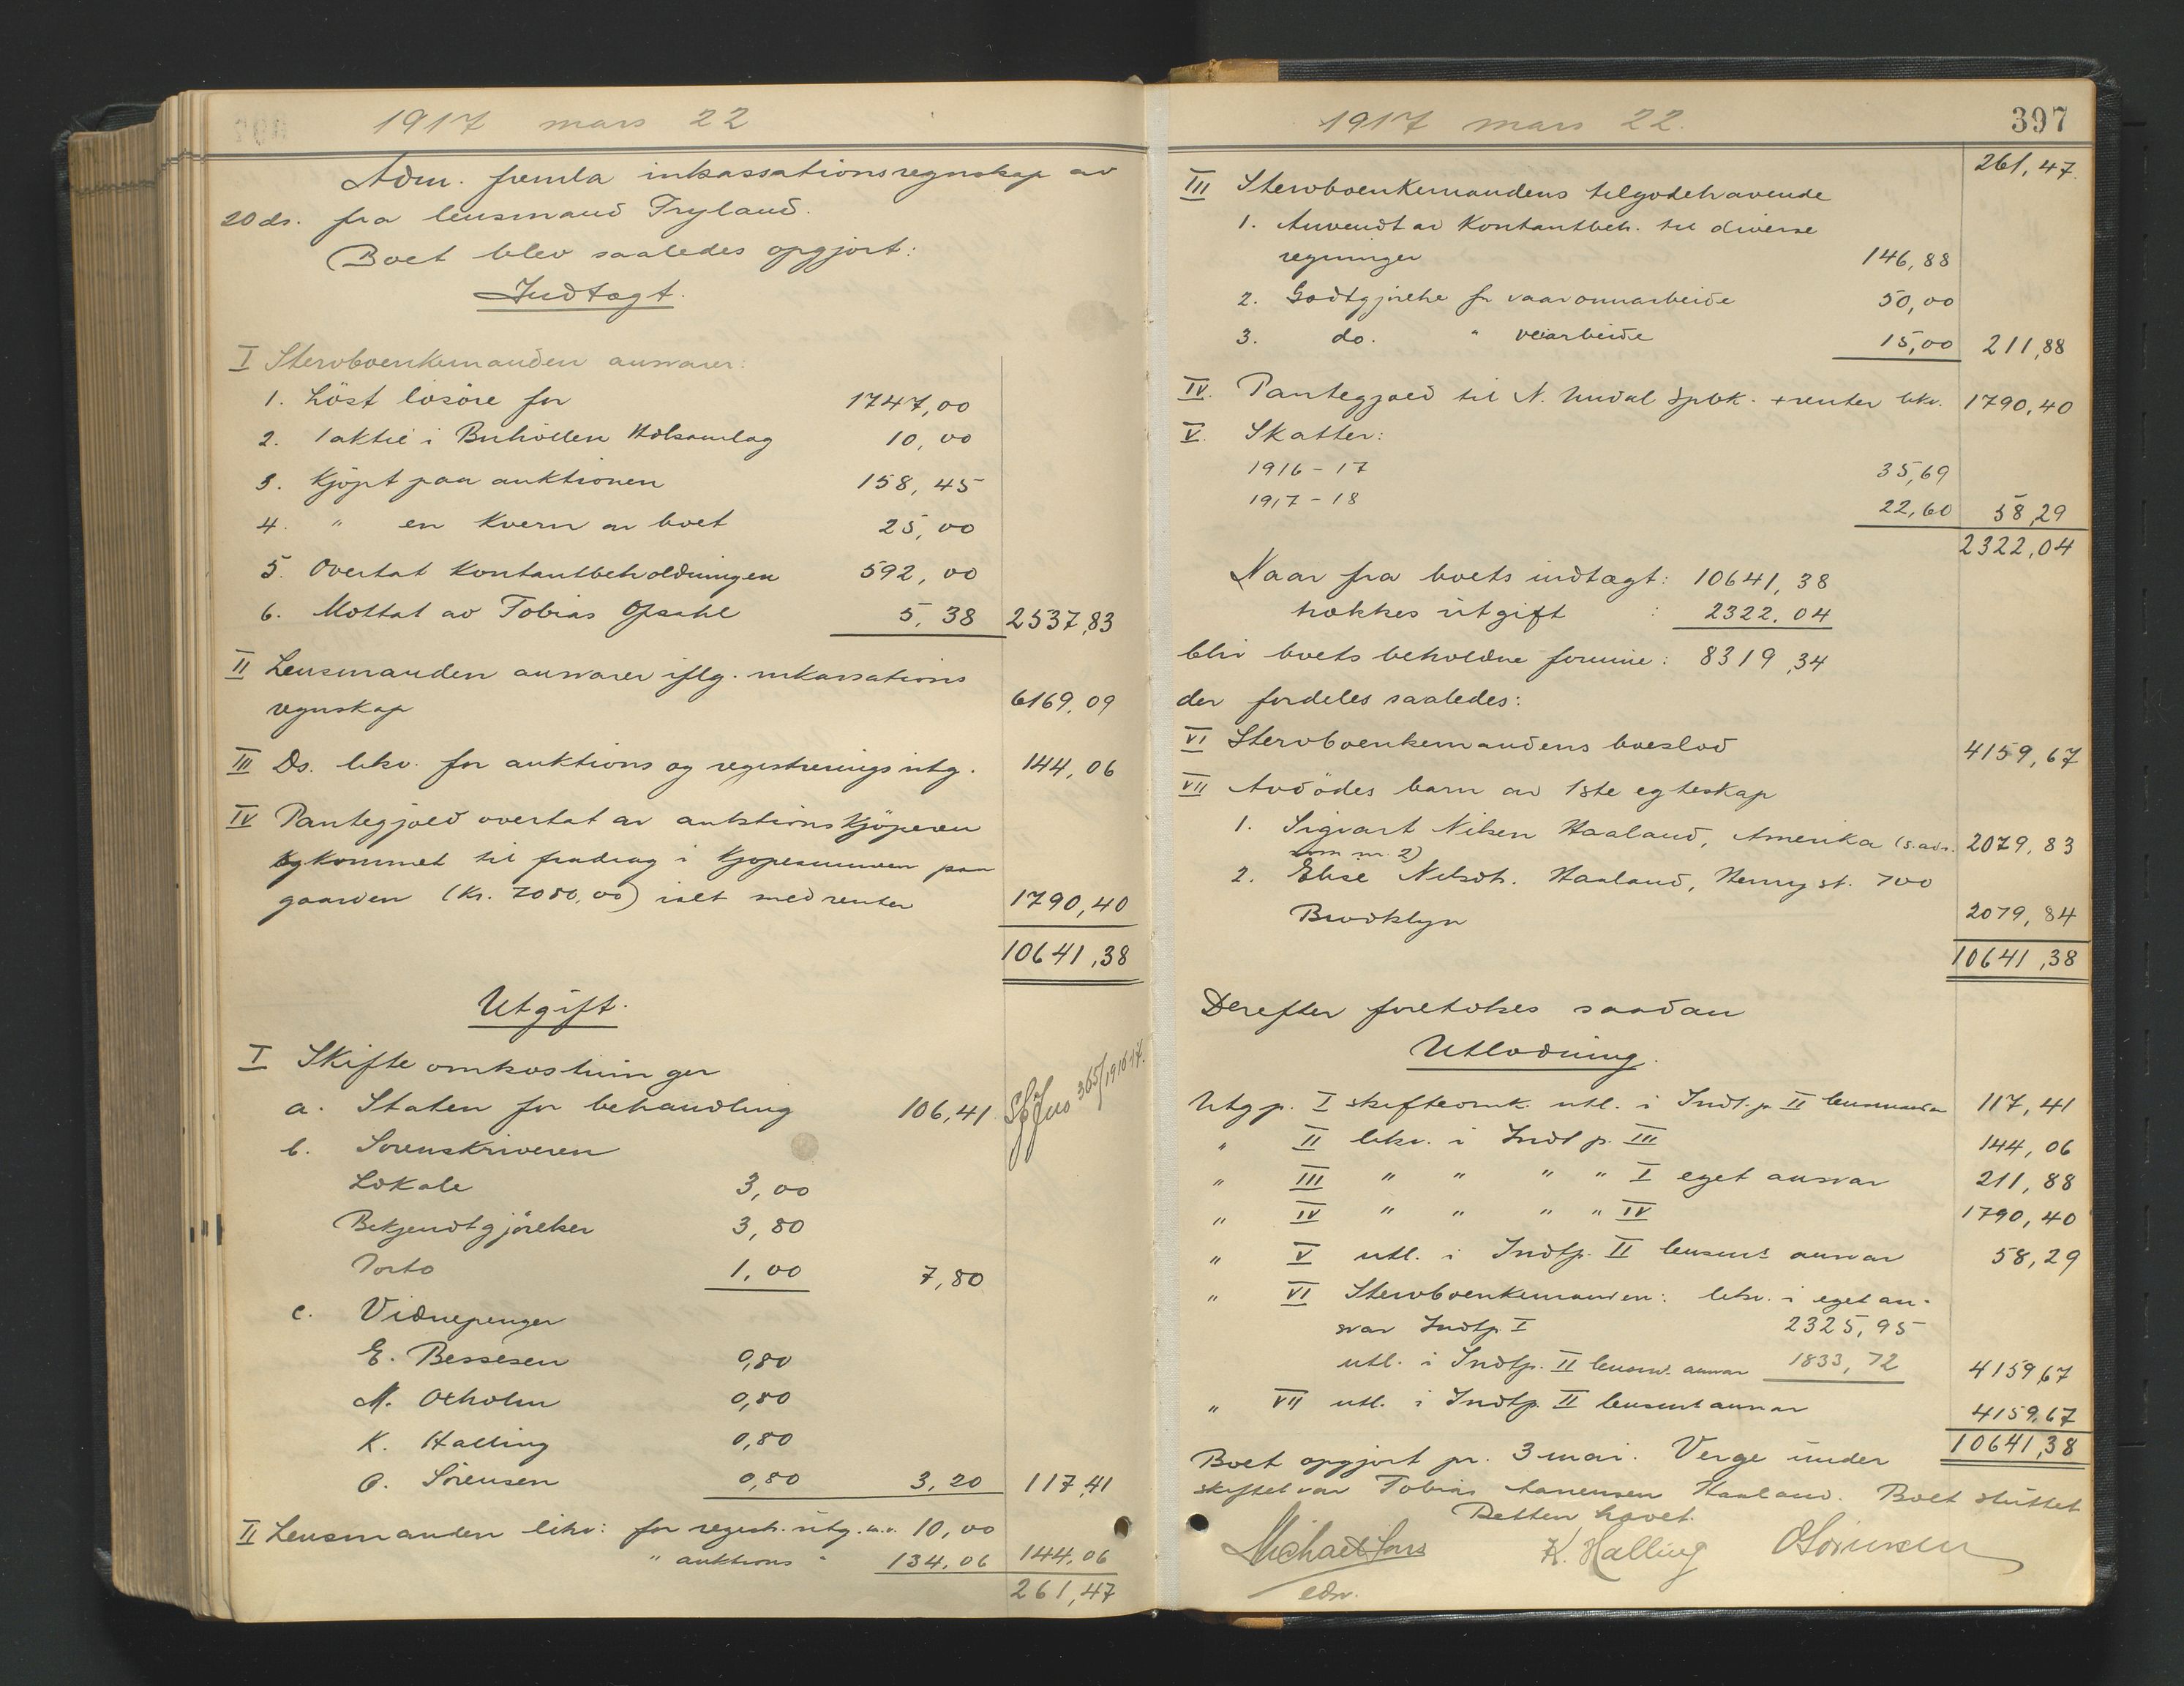 1917 mars 22
Adm. fremla inkassationsregnskap av
20 ds. fra lensmand Fryland.
Boet blev saaledes opgjort:
Indtægt.
I Stervboenkemanden ansvarer:
1. Löst lösöre for 1747,00
2. 1 aktie i 10,00
3. Kjöpt paa auktionen 158,45
4. " en Kvern av boet 25,00
5. Overtat Kontantbeholdningen 592,00
6. Mottat av Tobias Opsahl 5,38 2537,83
II Lensmanden ansvarer iflg. inkassations
regnskap 6169,09
III Ds. likv. for auktions og registreringsutg. 144,06
IV Pantegjæld overtat av auktionskjöperen
og kommet til fradrag i Kjöpesummen paa
gaarden (Kr. 7080,00) ialt med renter 1790,40
10641,38
Utgift.
I Skifteomkostninger
a. Staten for behandling 106,41 365/1916-17.
b. Sorenskriveren
Lokale 3,00
Bekjendtgjörelser 3,80
Porto 1,00 7,80
c. Vidnepenger
E. Bessesen 0,80
M. Oxholm 0,80
K. Halling 0,80
O. Sörensen 0,80 3,20 117,41
II Lensmanden likv: for registr. utg. m.v. 10,00
" auktions " 134,06 144,06
261,47
1917 mars 22. 397
261,47
III Stervboenkemandens tilgodehavende
1. Anvendt av Kontantbeh. til diverse
regninger 146,88
2. Godtgjörelse for vaaronnarbeide 50,00
3. do. " veiarbeide 15,00 211,88
IV. Pantegjæld til N. Undal Spbk. + renter likv. 1790,40
V. Skatter:
1916-17 35,69
1917-18 22,60 58,29
2322,04
Naar fra boets indtægt: 10641,38
trækkes utgift : 2322,04
blir boets beholdne formue: 8319,34
der fordeles saaledes:
VI Stervboenkemandens boeslod 4159,67
VII Avdödes barn av 1ste egteskap
1. Sigvart Nilsen Haaland, Amerika (s. adr. 2079,83
som nr. 2)
2. Elise Nilsdtr. Haaland, Henry st. 700
Brooklyn 2079,84
10641,38
Derefter foretokes saadan
Utlodning.
Utg p. I skifteomk. utl. i Indt. p. II lensmanden 117,41
" II likv. i Indt p. III 144,06
" III " " " " I eget ansvar 211,88
" IV " " " " IV 1790,40
" V utl. i Indtp. II lensms ansvar 58,29
" VI Stervboenkemanden: likv. i eget an-
svar Indtp. I 2325,95
utl. i Indtp. II lensm. ansvar 1833,72 4159,67
" VII utl. i Indtp. II lensms ansvar 4159,67
10641,38
Boet opgjort pr. 3 mai. Verge under
skiftet var Tobias Aanensen Haaland. Boet sluttet
Retten hævet.
Michael K. Halling OSörensen
edsv.